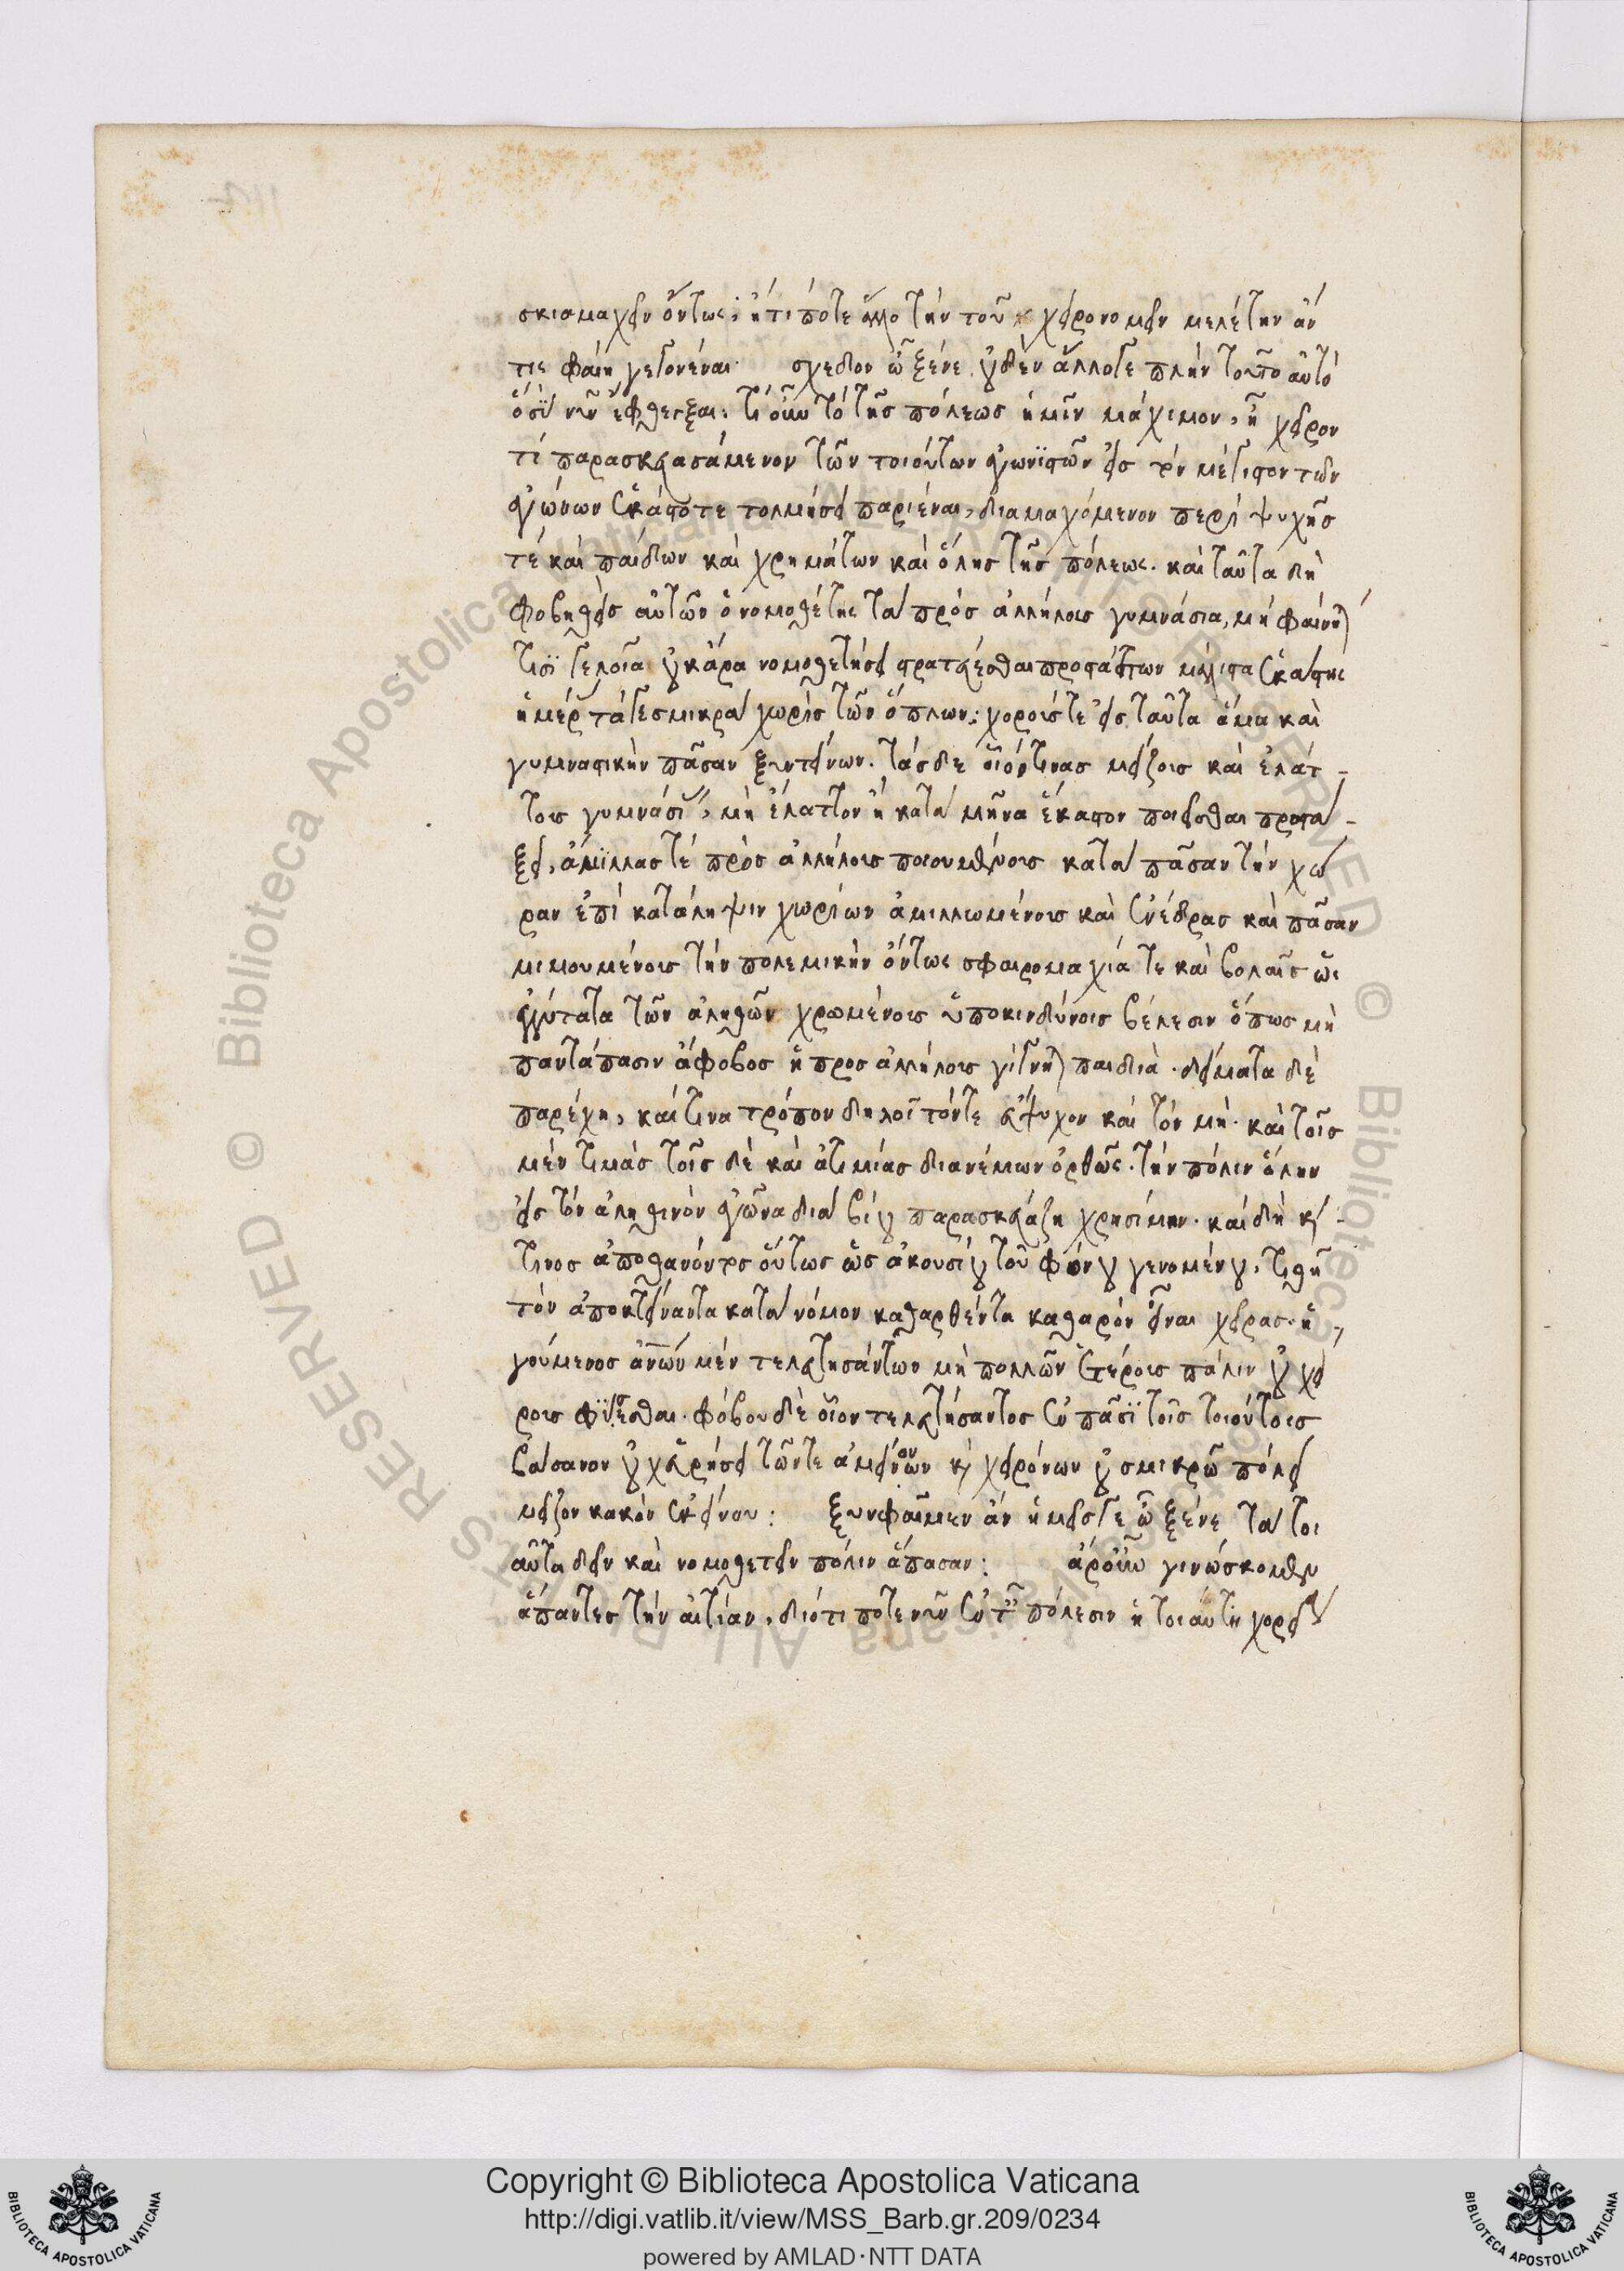 σκιαμαχεῖν ὄντως; ἤ τί ποτε ἄλλο τὴν τοῦ χειρονομεῖν μελέτην ἄν
τις φαίη γεγονέναι. σχεδὸν ὦ ξένε οὐδὲν ἄλλο γε πλὴν τοῦτο αὐτό
ὅ σὺ νῦν ἔφθεγξαι: τί οὖν τὸ τῆς πόλεως ἡμῖν μάχιμον, ἢ χεῖρον
τί παρασκευασάμενον τῶν τοιούτων ἀγωνιστῶν εἰς τὸν μέγιστον τῶν
ἀγώνων ἑκάστοτε τολμήσει παριέναι, διαμαχόμενον περὶ ψυχῆς
τέ καὶ παίδων καὶ χρημάτων καὶ ὅλης τῆς πόλεως. καὶ ταῦτα δὴ
φοβηθεὶς αὐτῶν ὁ νομοθέτης τὰ πρὸς ἀλλήλους γυμνάσια, μὴ φαίνηται
τισὶ γελοῖα οὐκ ἄρα νομοθετήσει στρατεύεσθαι προστάττων μάλιστα ἑκάστης
ἡμέρας τά γε σμικρὰ χωρὶς τῶν ὅπλων: χορούς τε εἰς ταῦτα ἅμα καὶ
γυμναστικὴν πᾶσαν ξυντείνων. τὰς δὲ οἷόν τινας μείζους καὶ ἐλάτ-
τους γυμνάσεις, μὴ ἔλαττον ἢ κατὰ μῆνα ἕκαστον ποιεῖσθαι προστά-
ξει, ἁμίλλας τέ πρὸς ἀλλήλους ποιουμένους κατὰ πᾶσαν τὴν χώ
ραν ἐπὶ κατάληψιν χωρίων ἁμιλλωμένους καὶ ἐνέδρας καὶ πᾶσαν
μιμουμένους τὴν πολεμικὴν ὄντως σφαιρομαχίά τε καὶ βολαῖς ὡς
ἐγγύτατα τῶν ἀληθῶν χρωμένους ὑποκινδύνοις βέλεσιν ὅπως μὴ
παντάπασιν ἄφοβος ἡ προς ἀλλήλους γίγνηται παιδιὰ. δείματα δὲ
παρέχη, καί τινα τρόπον δηλοῖ τόν τε εὔψυχον καὶ τὸν μὴ. καὶ τοῖς
μὲν τιμὰς τοῖς δὲ καὶ ἀτιμίας διανέμων ὀρθῶς. τὴν πόλιν ὅλην
εἰς τὸν ἀληθινὸν ἀγῶνα διὰ βίου παρασκευάζη χρησίμην. καὶ δὴ καί
τινος ἀποθανόντος οὕτως ὡς ἀκουσίου τοῦ φόνου γενομένου, τιθῆ
τὸν ἀποκτείναντα κατὰ νόμον καθαρθέντα καθαρὸν εἶναι χεῖρας. ἡ-
γούμενος ἀνων μὲν τελευτησάντων μὴ πολλῶν ἑτέρους πάλιν οὐ χεί
ρους φύεσθαι. φόβου δὲ οἷον τελευτήσαντος ἐν πᾶσι τοῖς τοιούτοις
βάσανον οὐχ εὑρήσει τῶν τε ἀμεινόνων καὶ χειρόνων οὐ σμικρῶ πόλει
μεῖζον κακὸν ἐκείνου: ξυνφαῖμεν ἂν ἡμεῖς γε ὦ ξένε τὰ τοι
αῦτα δεῖν καὶ νομοθετεῖν πόλιν ἅπασαν: ἆρ οὖν γινώσκομεν
ἅπαντες τὴν αἰτίαν, διότι ποτε νῦν ἐν ταῖς πόλεσιν ἡ τοιαύτη χορεία
Copyright © Biblioteca Apostolica Vaticana
http://digi.vatlib.it/view/MSS_Barb.gr.209/0234
powered by AMLAD·NTT DATA